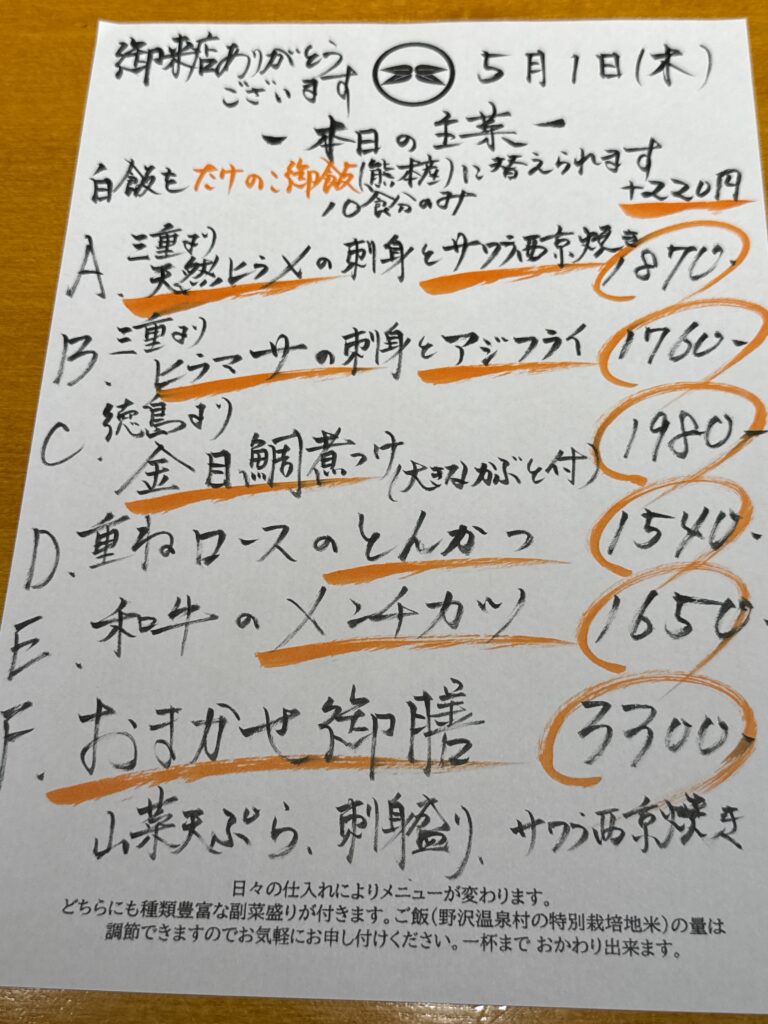 御来店ありがとう
ございます
5月1日(木)
- 本日の主菜 -
白飯を たけのこ御飯(熊本産)に替えられます
10食分のみ
+220円
A. 三重より
天然ヒラメの刺身とサワラ西京焼き 1870-
B. 三重より
ヒラマサの刺身とアジフライ 1760-
C. 徳島より
金目鯛煮つけ(大きなかぶと付) 1980-
D. 重ねロースのとんかつ 1540-
E. 和牛のメンチカツ 1650-
F. おまかせ御膳 3300-
山菜天ぷら、刺身盛り、サワラ西京焼き
日々の仕入れによりメニューが変わります。
どちらにも種類豊富な副菜盛りが付きます。ご飯(野沢温泉村の特別栽培地米)の量は
調節できますのでお気軽にお申し付けください。一杯まで おかわり出来ます。